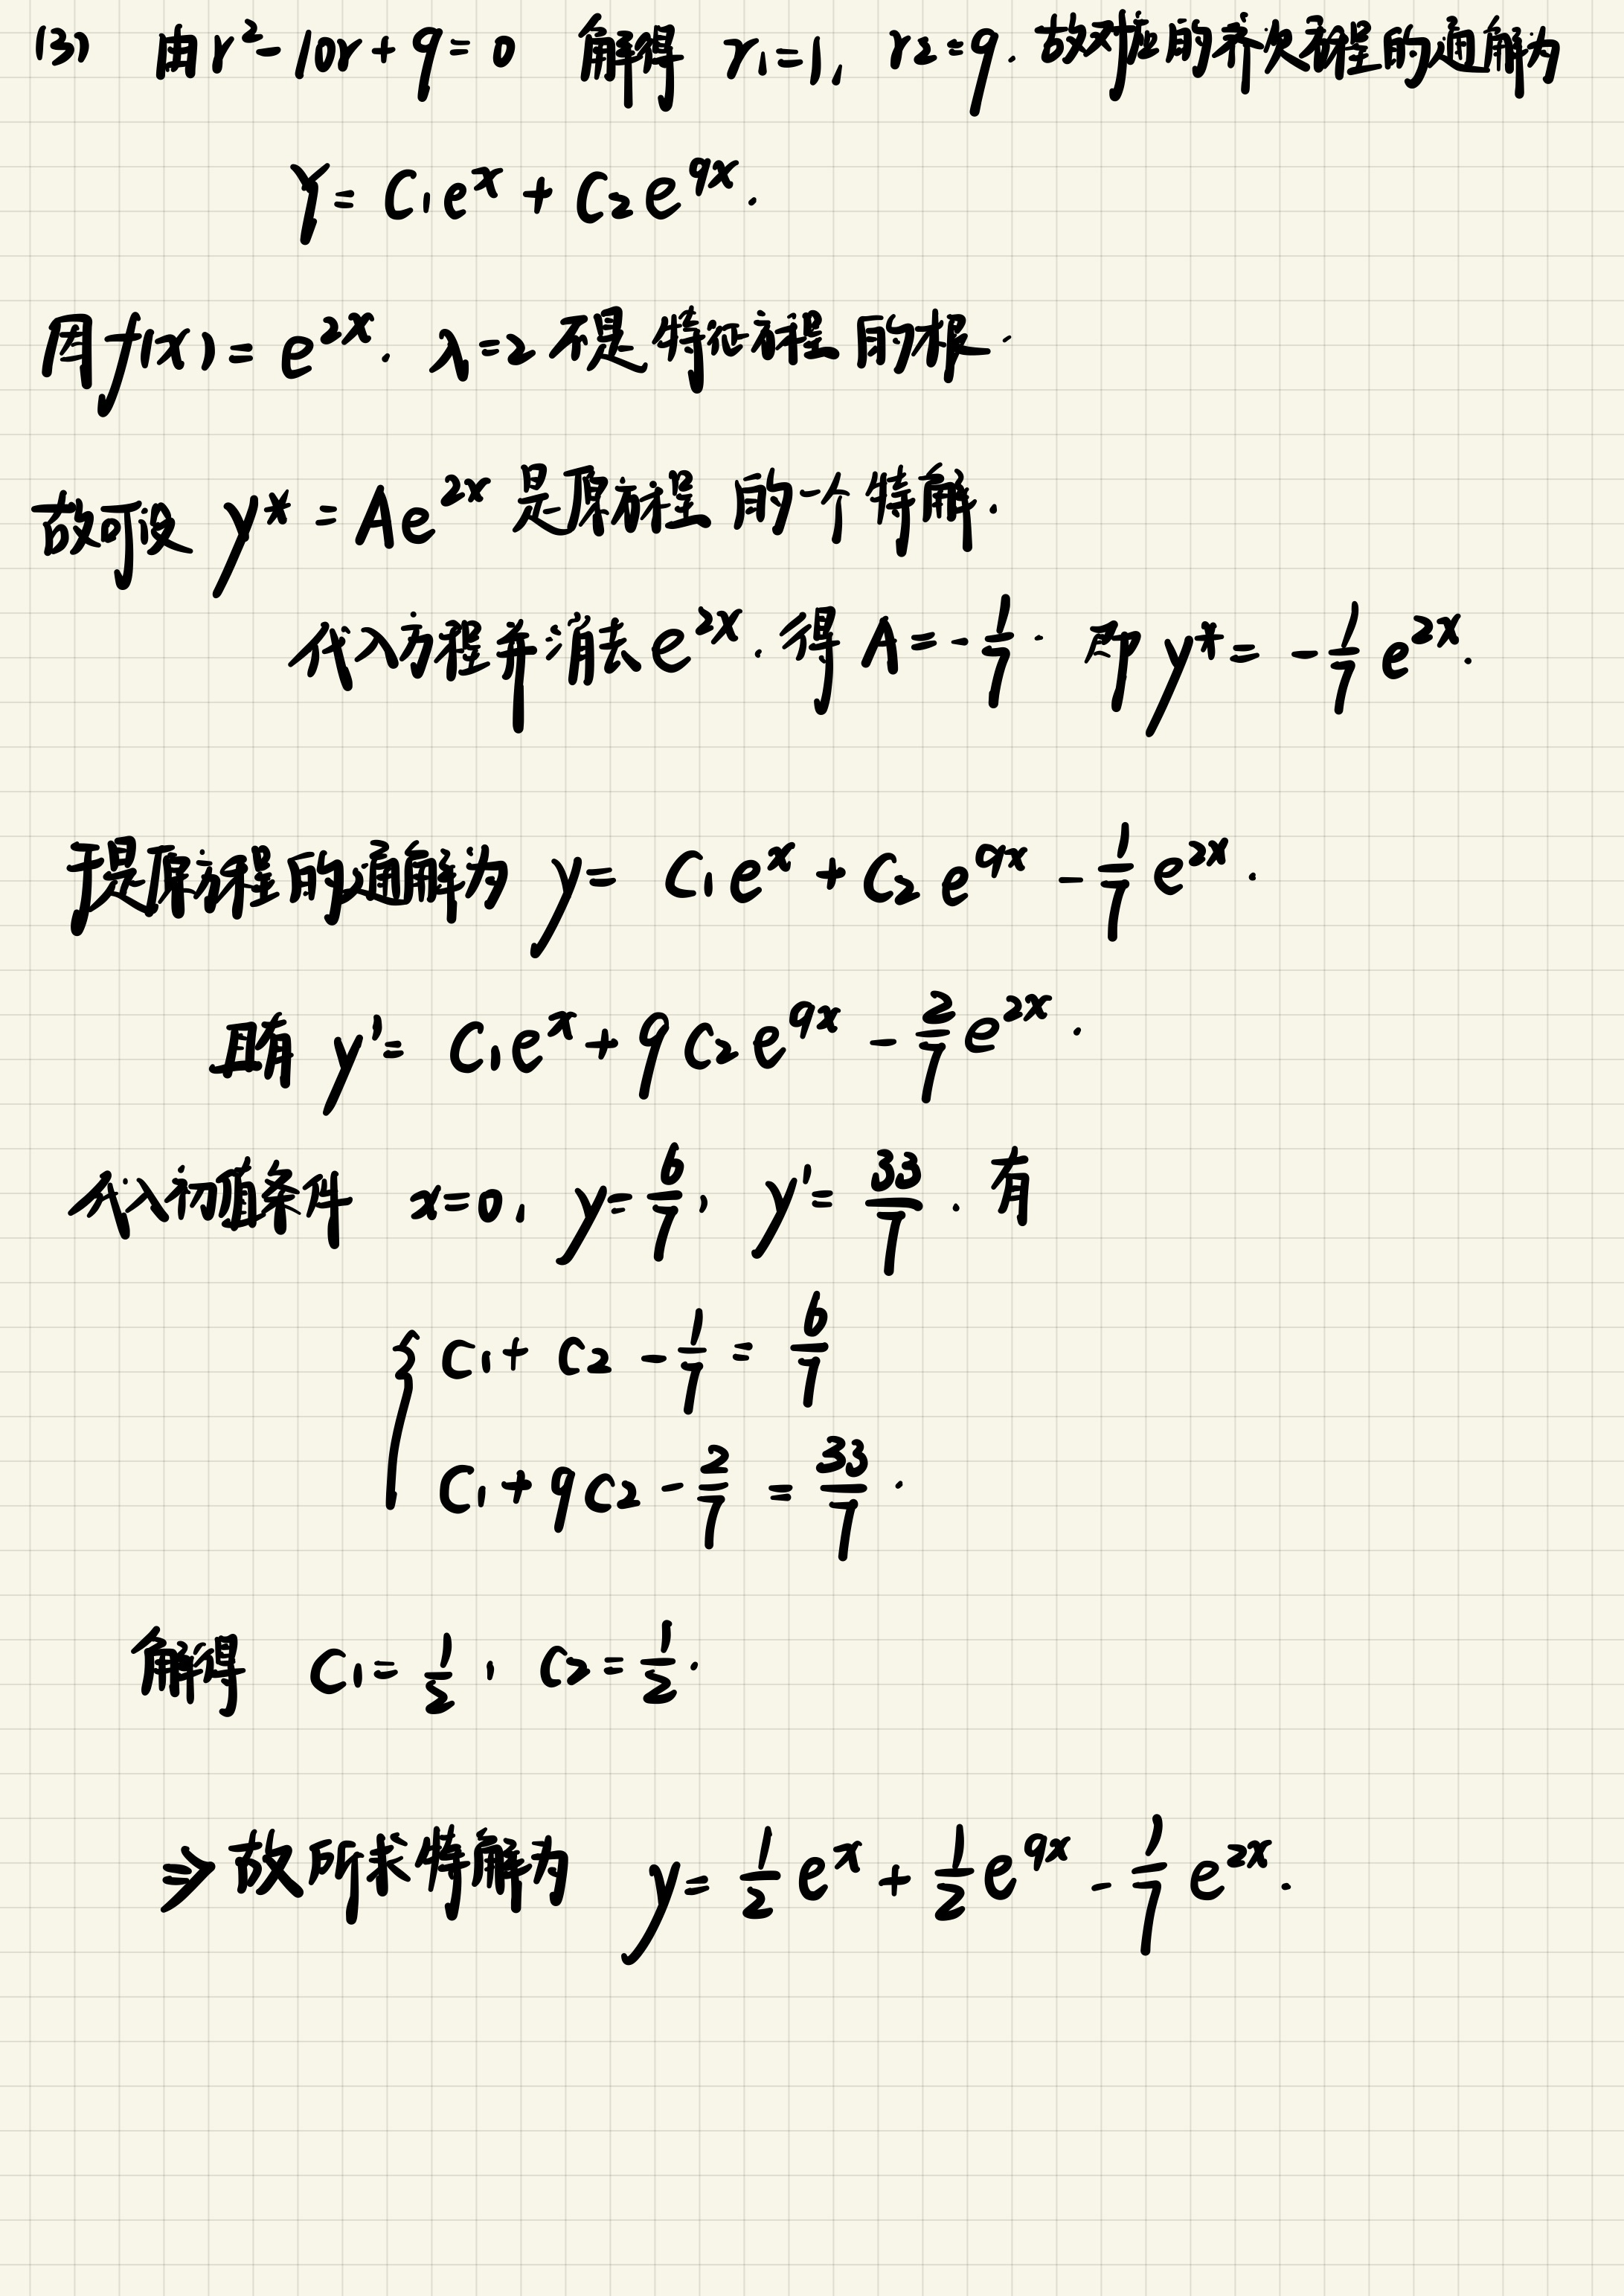 (3) 由r²-10r+9=0 解得 r₁=1, r₂=9. 故对应的齐次方程的通解为
Y= C₁eˣ + C₂e⁹ˣ.
因f(x)= e²ˣ. λ=2 不是特征方程的根.
故可设 y* = Ae²ˣ 是原方程的一个特解.
代入方程并消去e²ˣ. 得 A=-1/7. 即 y*= -1/7 e²ˣ.
于是原方程的通解为 y= C₁eˣ + C₂e⁹ˣ - 1/7 e²ˣ.
且有 y'= C₁eˣ + 9C₂e⁹ˣ - 2/7 e²ˣ.
代入初值条件 x=0, y=6/7, y'=33/7. 有
{ C₁+ C₂ - 1/7 = 6/7
C₁+9C₂ - 2/7 = 33/7.
解得 C₁=1/2, C₂=1/2.
⇒故所求特解为 y= 1/2 eˣ + 1/2 e⁹ˣ - 1/7 e²ˣ.